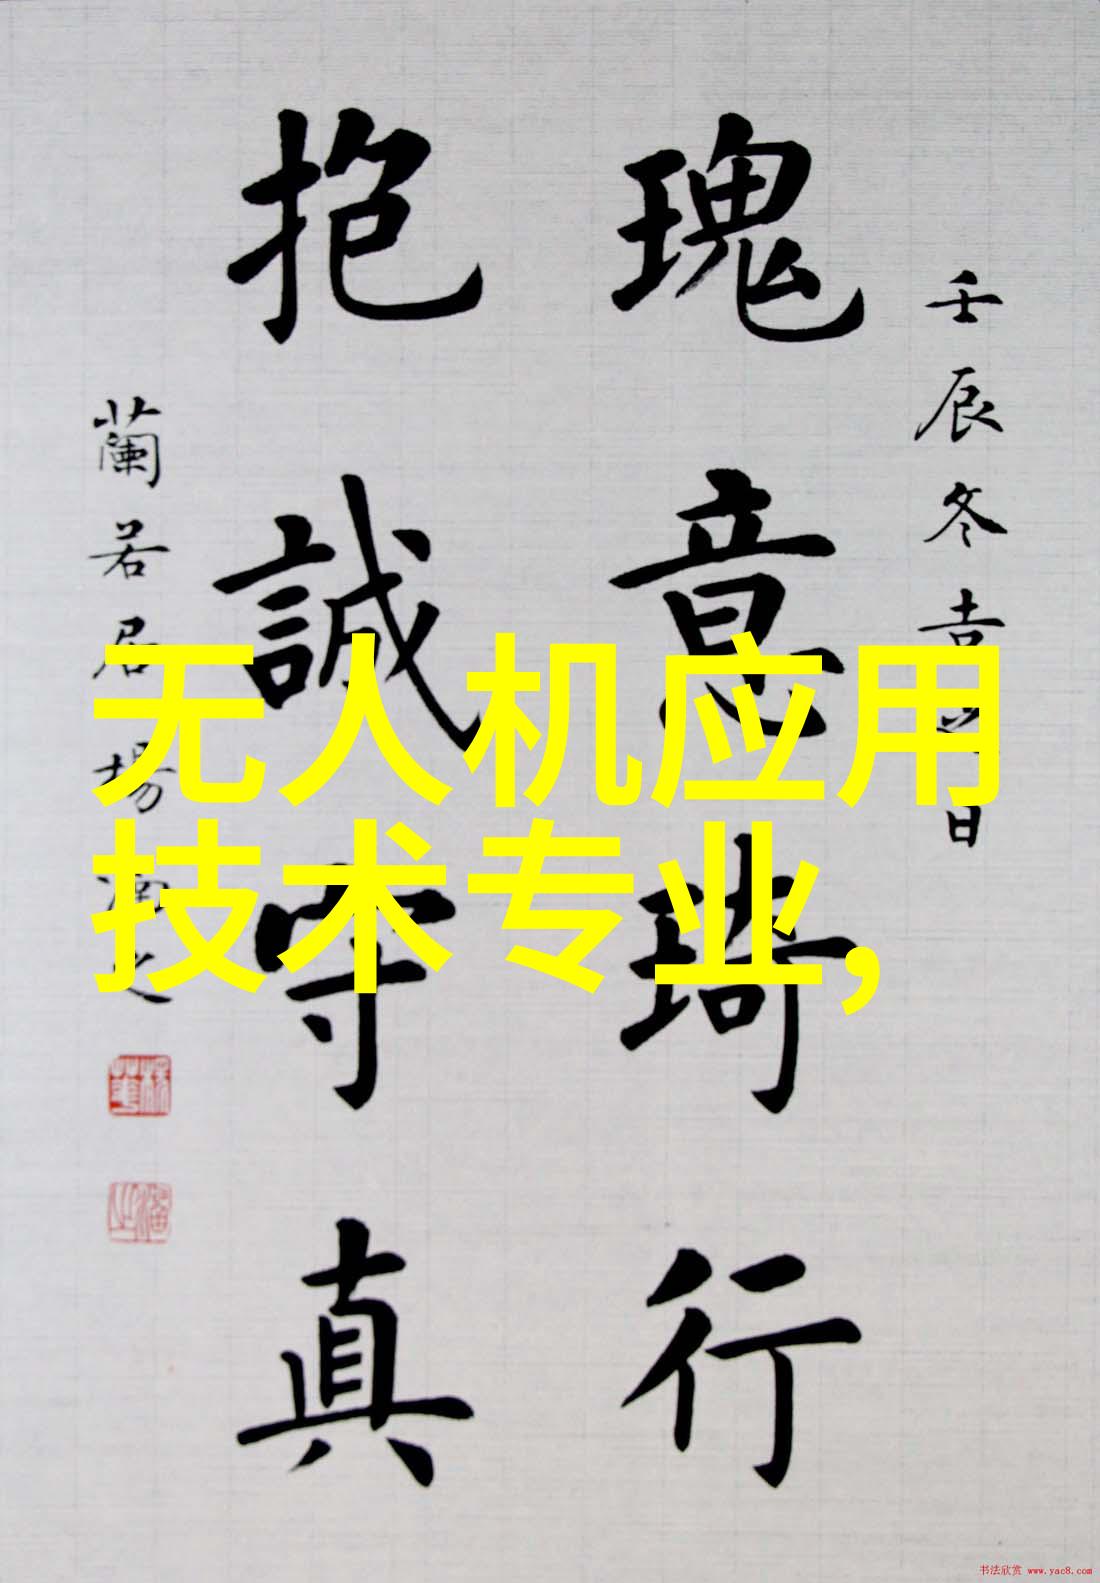 壬辰冬吉
日
瑰意琦行
抱誠守真
蘭若居楊
无人机应用
技术专业,
书法欣赏 www.yac8.com